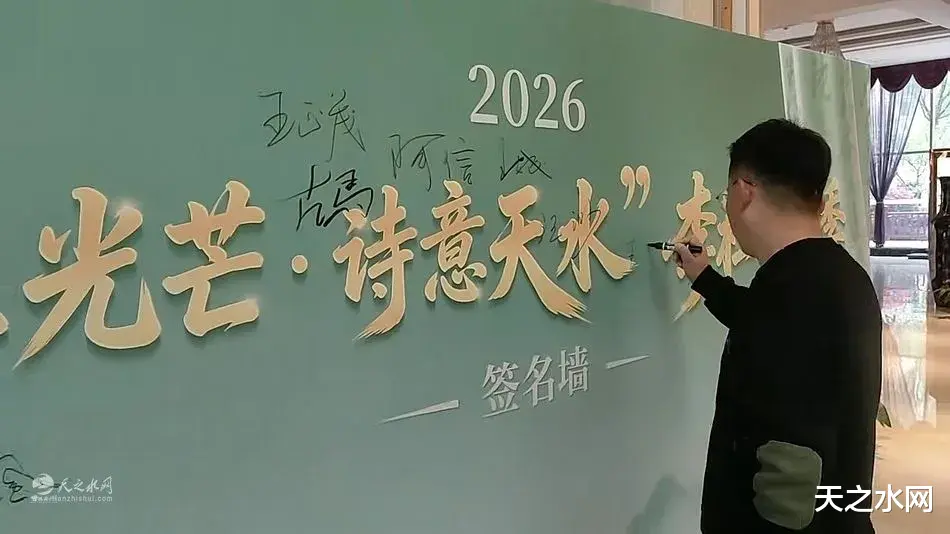 2026
王正茂
阿信
古马
光芒·诗意天水”李
签名墙
天之水网
www.tianzhishui.com
天之水网